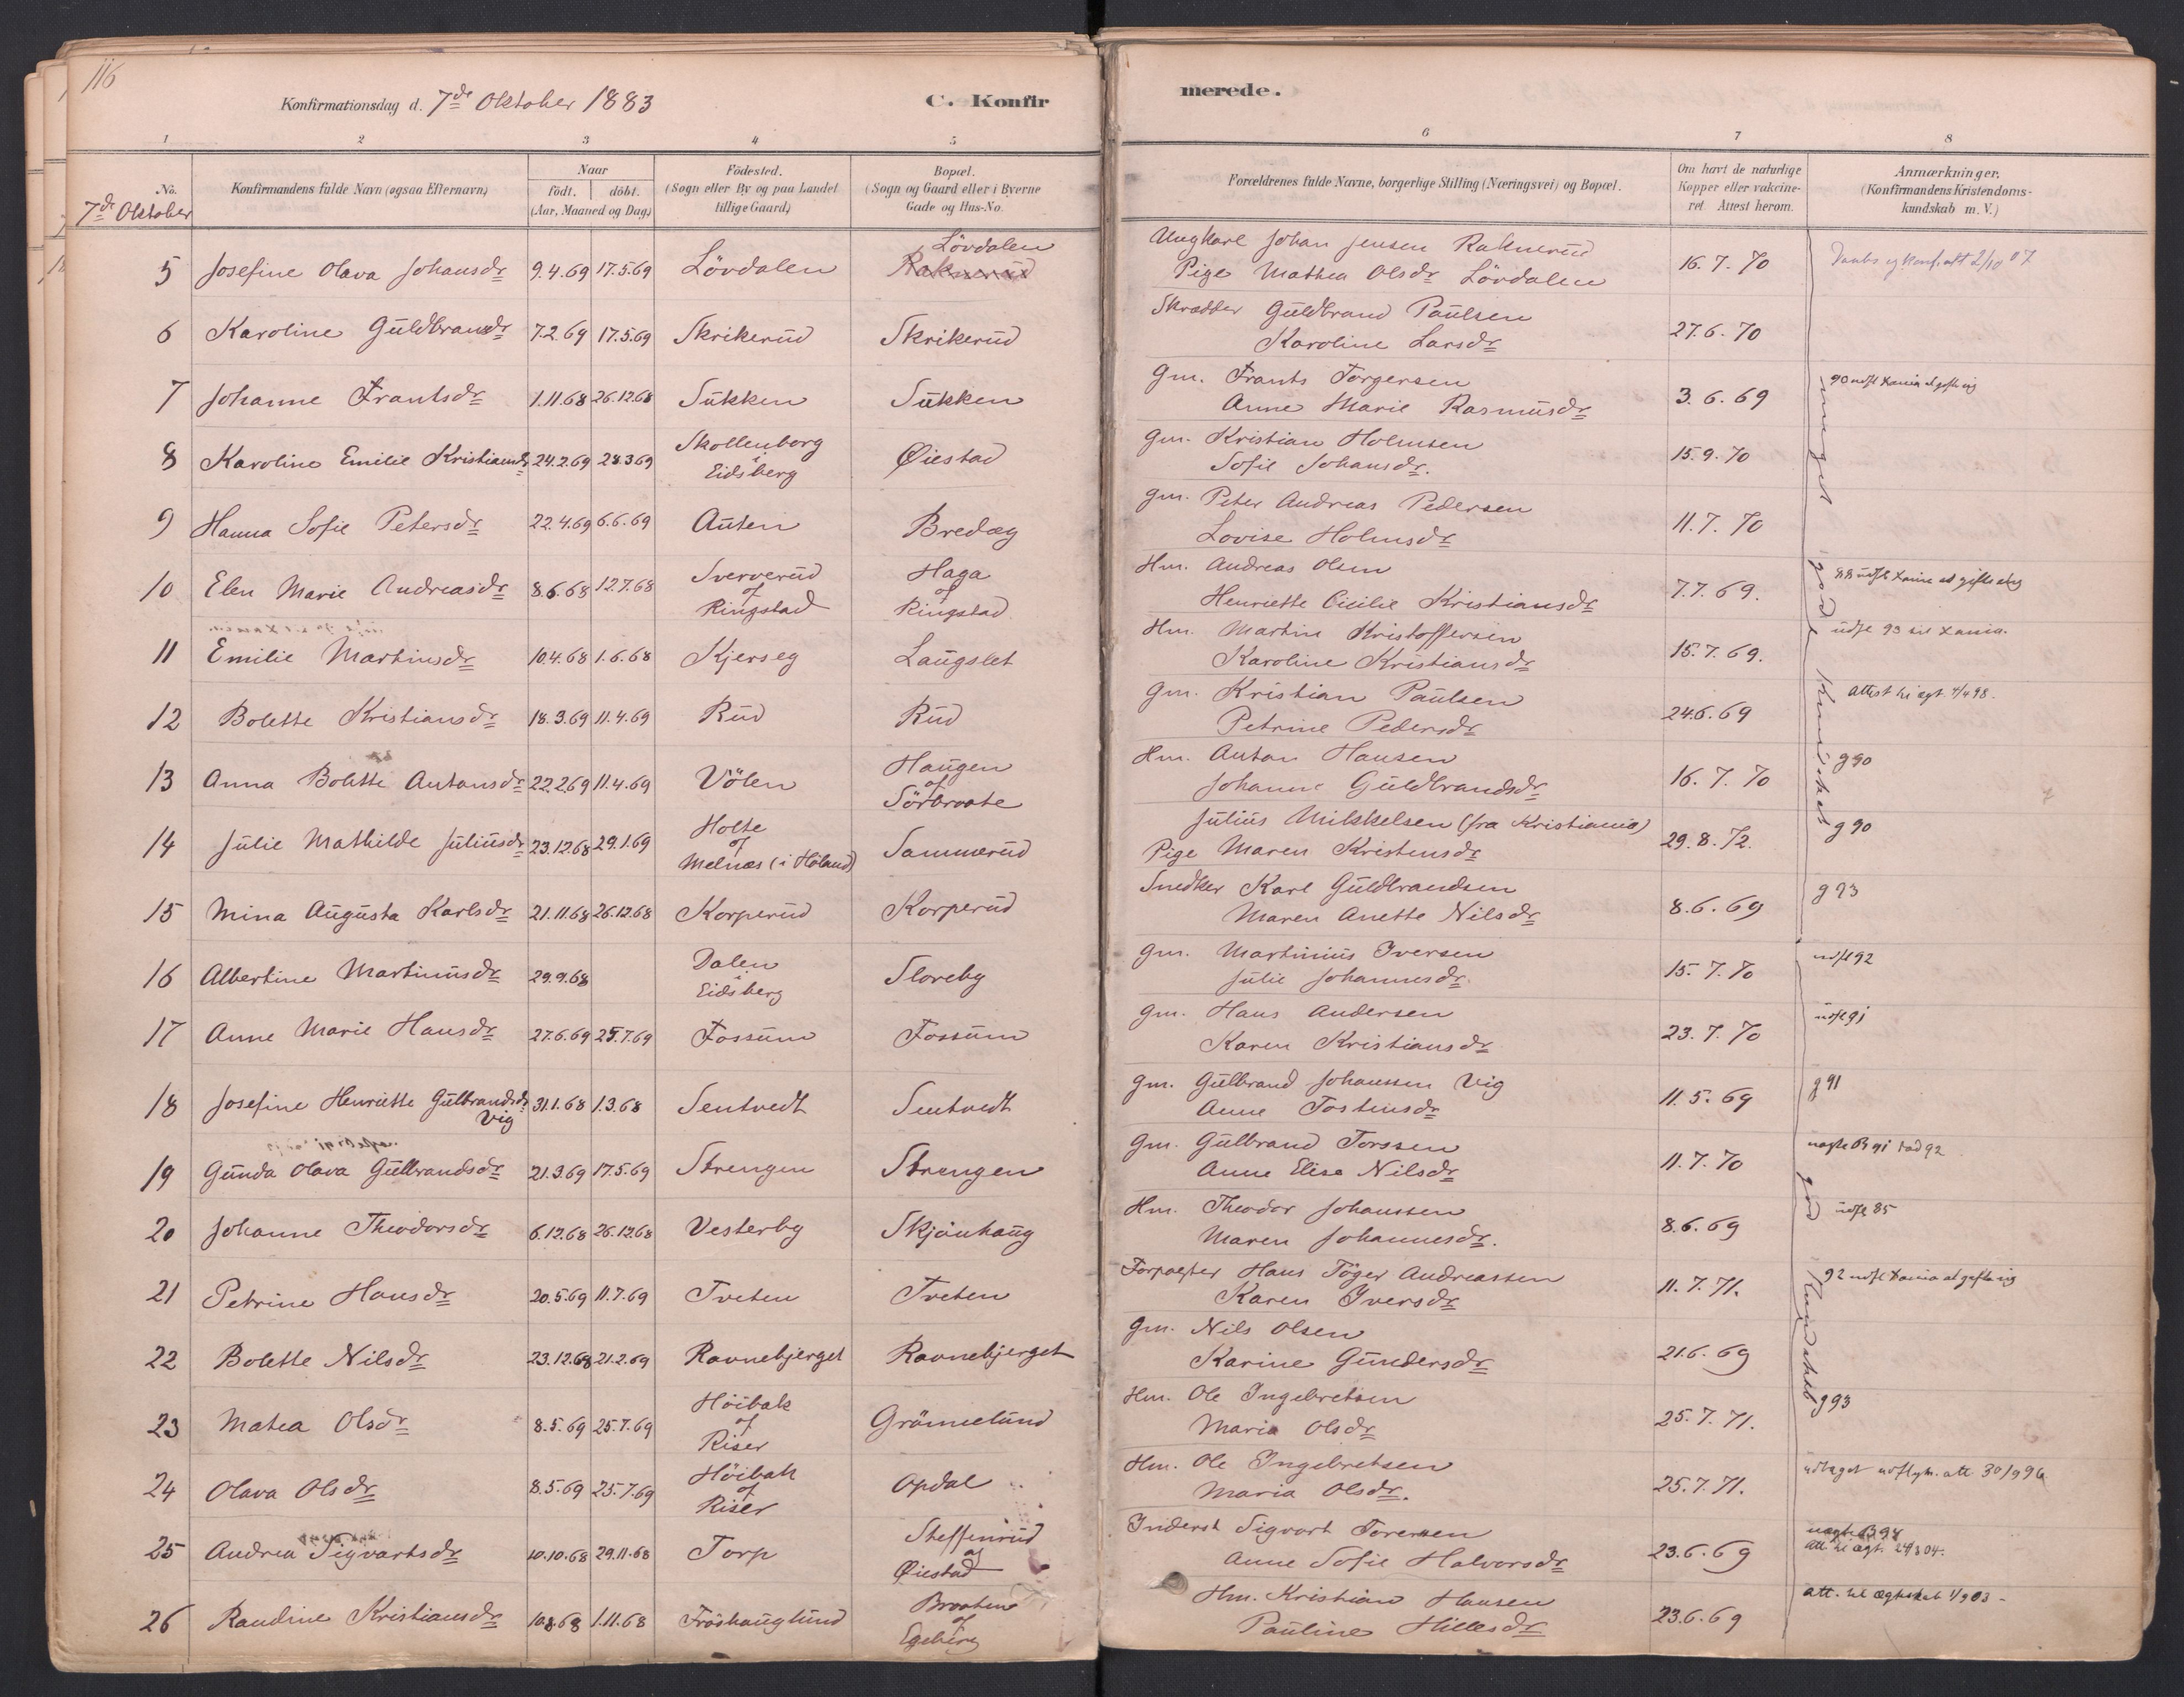 116
Konfirmationsdag d. 7de Oktober 1883
C. Konfirmerede.
1 2 3 4 5 6 7 8
No.
Konfirmandens fulde Navn (ogsaa Efternavn)
Naar
födt. döbt.
(Aar, Maaned og Dag)
Födested.
(Sogn eller By og paa Landet
tillige Gaard)
Bopæl.
(Sogn og Gaard eller i Byerne
Gade og Hus-No.
Forældrenes fulde Navne, borgerlige Stilling (Næringsvei) og Bopæl.
Om havt de naturlige
Kopper eller vakcine-
ret. Attest herom.
Anmærkninger.
(Konfirmandens Kristendoms-
kundskab m. V.)
7de Oktober
5 Josefine Olava Johansdr 9.4.69 17.5.69 Lövdalen Lövdalen Raknerud Ungkarl Johan Jensen Raknerud
Pige Mathea Olsdr Lövdalen 16.7.70 Daabs og konf. att 2/10 07
6 Karoline Guldbransdr 7.2.69 17.5.69 Skrikerud Skrikerud Skrædder Guldbrand Paulsen
Karoline Larsdr 27.6.70
7 Johanne Frantsdr 1.11.68 26.12.68 Sukken Sukken Gm. Frants Torgersen
Anne Marie Rasmusdr 3.6.69 90 udfl Xania at gifte sig
8 Karoline Emilie Kristiansdr 24.2.69 28.3.69 Skollenborg
i
Eidsberg Øiestad Gm. Kristian Holmsen
Sofie Johansdr. 15.9.70
9 Hanna Sofie Petersdr 22.4.69 6.6.69 Auten Bredæg Gm. Peter Andreas Pedersen
Lovise Holmsdr 11.7.70
10 Elen Marie Andreasdr 8.6.68 12.7.68 Sververud
af
Ringstad Haga
af
Ringstad Hm. Andreas Olsen
Henriette Cicilie Kristiansdr 7.7.69. 88 udfl Xania at gifte sig
11 Emilie Martinsdr 10.4.68 1.6.68 Kjerseg Laugslet Hm. Martin Kristoffersen
Karoline Kristiansdr 15.7.69. udfl 93 til Xania.
12 Bolette Kristiansdr 18.3.69 11.4.69 Rud Rud Gm. Kristian Paulsen
Petrine Pedersdr 24.6.69 Attest til ægt. 4/4 98.
13 Anna Bolette Antonsdr 22.2.69 11.4.69 Völen Haugen
af
Sörbraate Hm. Anton Hansen
Johanne Guldbrandsdr 16.7.70 g 90
14 Julie Mathilde Juliusdr 23.12.68 29.1.69 Holte
af
Melnæs (i Höland) Sammerud Julius Mikkelsen (fra Kristiania)
Pige Maren Kristensdr 29.8.72. g 90
15 Mina Augusta Karlsdr 21.11.68 26.12.68 Korperud Korperud Snedker Karl Guldbrandsen
Maren Anette Nilsdr 8.6.69 g 93
16 Albertine Martinusdr 29.9.68 Dalen
i
Eidsberg Sloreby Gm. Martinius Iversen
Julie Johannesdr. 15.7.70 udfl 92
17 Anne Marie Hansdr 27.6.69 25.7.69 Fossum Fossum Gm. Hans Andersen
Karen Kristiansdr 23.7.70 udfl 91
18 Josefine Henriette Gulbrandsdr
Vig 31.1.68 1.3.68 Sentvedt Sentvedt Gm. Gulbrand Johanssen Vig
Anne Tostensdr 11.5.69 g 91
19 Gunda Olava Gulbrandsdr 21.3.69 17.5.69 Strengen Strengen Gm. Gulbrand Torssen
Anne Elise Nilsdr 11.7.70 uægte B 91 död 92
20 Johanne Theodorsdr 6.12.68 26.12.68 Vesterby Skjönhaug Hm. Theodor Johanssen
Maren Johannesdr. 8.6.69 udfl 85
21 Petrine Hansdr 20.5.69 11.7.69 Tveten Tveten Forpagter Hans Töger Andreassen
Karen Iversdr 11.7.71. 92 udfl Xania at gifte sig
22 Bolette Nilsdr 23.12.68 21.2.69 Ravnebjerget Ravnebjerget Gm. Nils Olsen
Karine Gundersdr 21.6.69
23 Matea Olsdr 8.5.69 25.7.69 Höibak
af
Riser Grönnelund Hm. Ole Ingebretsen
Maria Olsdr 25.7.71. g 93
24 Olava Olsdr 8.5.69 25.7.69 Höibak
af
Riser Opdal Hm. Ole Ingebretsen
Maria Olsdr. 25.7.71. udtaget udflytn. att 30/9 96
25 Andrea Sigvartsdr 10.10.68 29.11.68 Torp Steffenrud
af
Øiestad Inderst Sigvart Torersen
Anne Sofie Halvorsdr 23.6.69 uægte B 94
att. til ægt. 24/3 04.
26 Randine Kristiansdr 10.8.68 1.11.68 Fröshauglund Braaten
af
Egeberg Hm. Kristian Hansen
Pauline Hillesdr 23.6.69 att. til Ægteskab 1/9 03 -
meget gode Kundskab
god Kundskab